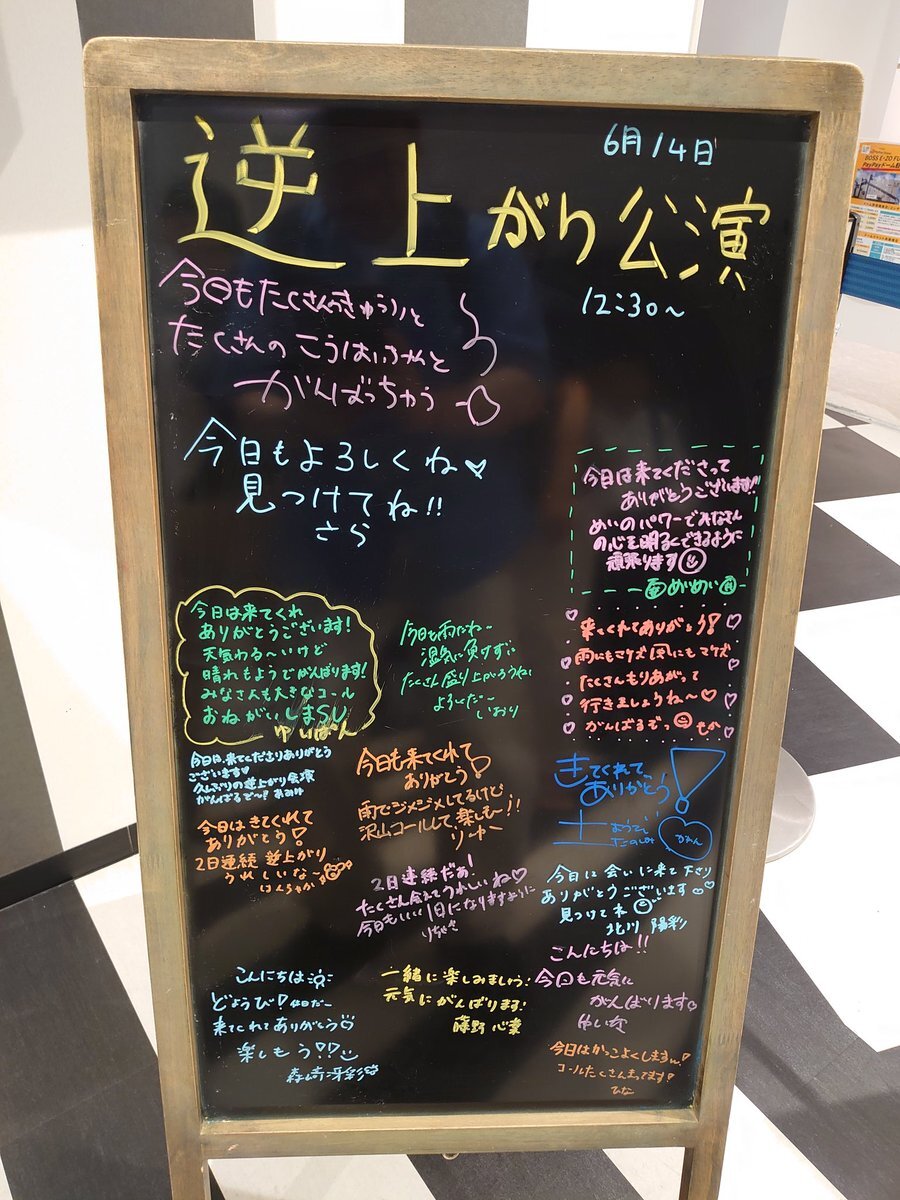 6月14日
逆上がり公演
12:30～
今日もたくさんきゅうりと
たくさんのこうはいちゃんと
がんばっちゃう
今日もよろしくね♥
見つけてね!!
さら
今日は来てくださって
ありがとうございます!!
めいのパワーでみなさん
の心を明るくできるように
頑張ります
めいめい
今日は来てくれ
ありがとうございます!
天気わる～いけど
晴れもようでがんばります!
みなさんも大きなコール
おねがいしまSU
ゆいぱん
今日も雨だね～
湿気に負けずに
たくさん盛り上がろうね
よろしくだ～
いおり
来てくれてありがとう!
雨にもマケズ風にもマケズ
たくさんもりあがって
行きましょうね～♡
がんばるぞっ もか
今日は来てくださりありがとう
ございます♥
久しぶりの逆上がり公演
がんばるぞ～!
今日も来てくれて
ありがとう!
雨でジメジメしてるけど
沢山コールして楽しも～!!
りーやー
きてくれて
ありがとう!
土ようび
たのしみ
かれん
今日はきてくれて
ありがとう!
2日連続 逆上がり
うれしいな～
2日連続だぁ!
たくさん会えてうれしいね♡
今日もいい1日になりますように
りちゃさ
今日は会いに来て下さり
ありがとうございます
見つけてネ
北川 陽彩
こんにちは
どようび! 休日だ～
来てくれてありがとう♡
楽しもう!?
森﨑冴彩
一緒に楽しみましょう!
元気にがんばります!
藤野 心葉
こんにちは!!
今日も元気に
がんばります♡
ゆいな
今日はかっこよくしますっ!
コールたくさんまってます!
ひな
BOSS E・ZO FU
PayPayドーム